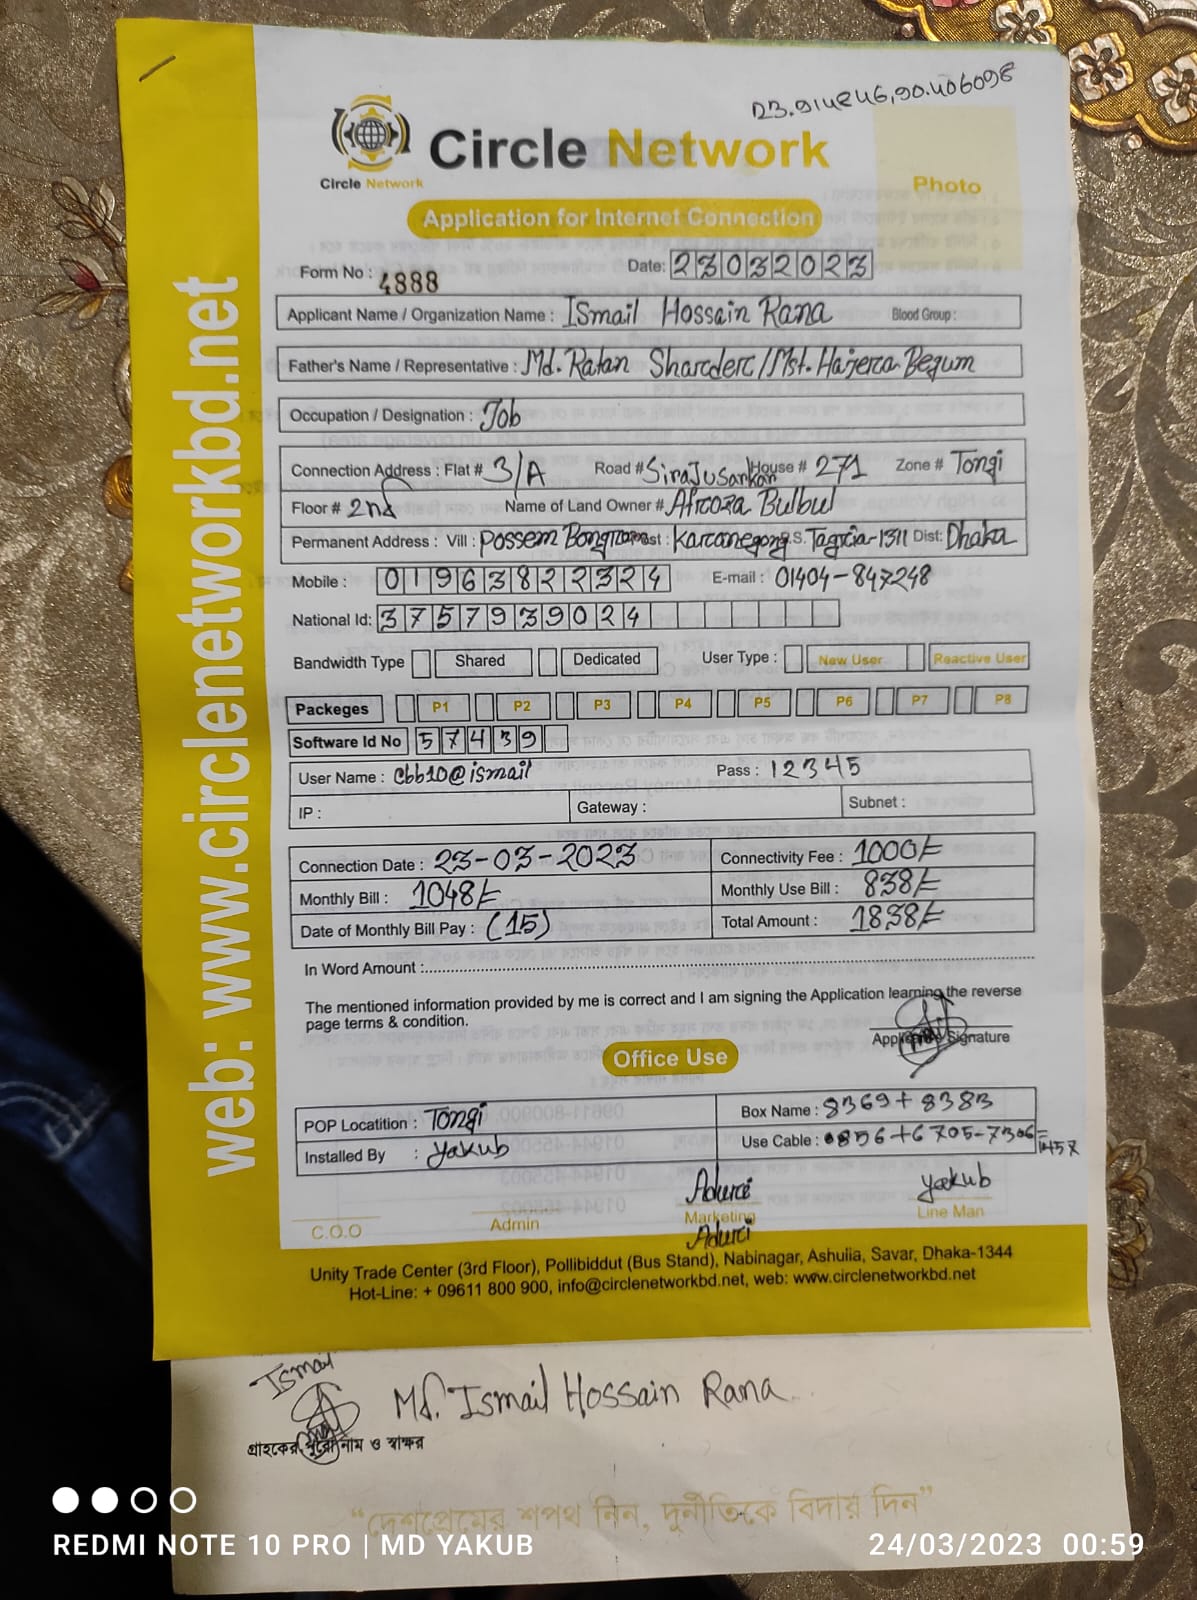 23.914246,90.406098
Circle Network
Circle Network
Photo
Application for Internet Connection
Form No : 4888
Date: 23032023
Applicant Name / Organization Name : Ismail Hossain Rana Blood Group :
Father's Name / Representative : Md. Ratan Sharder/Mst. Hajera Begum
Occupation / Designation : Job
Connection Address : Flat # 3/A Road # Sirajusarkar House # 271 Zone # Tongi
Floor # 2nd Name of Land Owner # Afroza Bulbul
Permanent Address : Vill : Possem Post : Karanegong P.S. 1311 Dist: Dhaka
Mobile : 01963822324 E-mail : 01404-847248
National Id: 3757939024
Bandwidth Type Shared Dedicated User Type : New User Reactive User
Packeges P1 P2 P3 P4 P5 P6 P7 P8
Software Id No 57439
User Name : cbb10@ismail Pass : 12345
IP : Gateway : Subnet :
Connection Date : 23-03-2023 Connectivity Fee : 1000/=
Monthly Bill : 1048/= Monthly Use Bill : 838/=
Date of Monthly Bill Pay : (15) Total Amount : 1838/=
In Word Amount :
The mentioned information provided by me is correct and I am signing the Application learning the reverse
page terms & condition.
Applicant Signature
Office Use
POP Locatition : Tongi Box Name : 8369+8383
Installed By : Yakub Use Cable : 856+6705-7306=
C.O.O Admin Marketing Line Man
Yakub
Unity Trade Center (3rd Floor), Pollibiddut (Bus Stand), Nabinagar, Ashulia, Savar, Dhaka-1344
Hot-Line: + 09611 800 900, info@circlenetworkbd.net, web: www.circlenetworkbd.net
web: www.circlenetworkbd.net
Ismail
Md. Ismail Hossain Rana
গ্রাহকের পুরো নাম ও স্বাক্ষর
“দেশপ্রেমের শপথ নিন, দুর্নীতিকে বিদায় দিন”
REDMI NOTE 10 PRO | MD YAKUB
24/03/2023 00:59